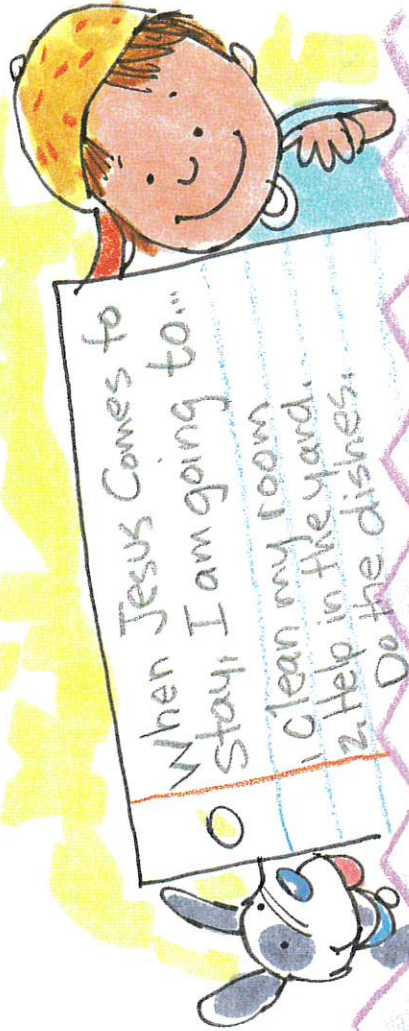 When Jesus Comes to
stay, I am going to...
1. Clean my room
2. Help in the yard.
Do the dishes.